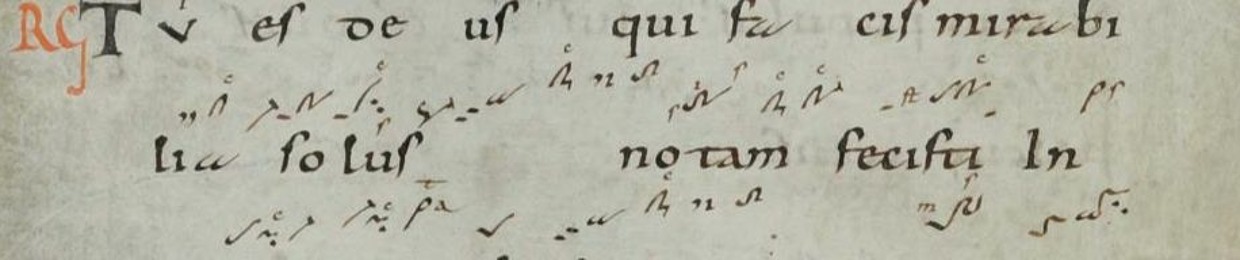 RG TV es de us qui fa cis mirabi
lia so lus notam fecisti In